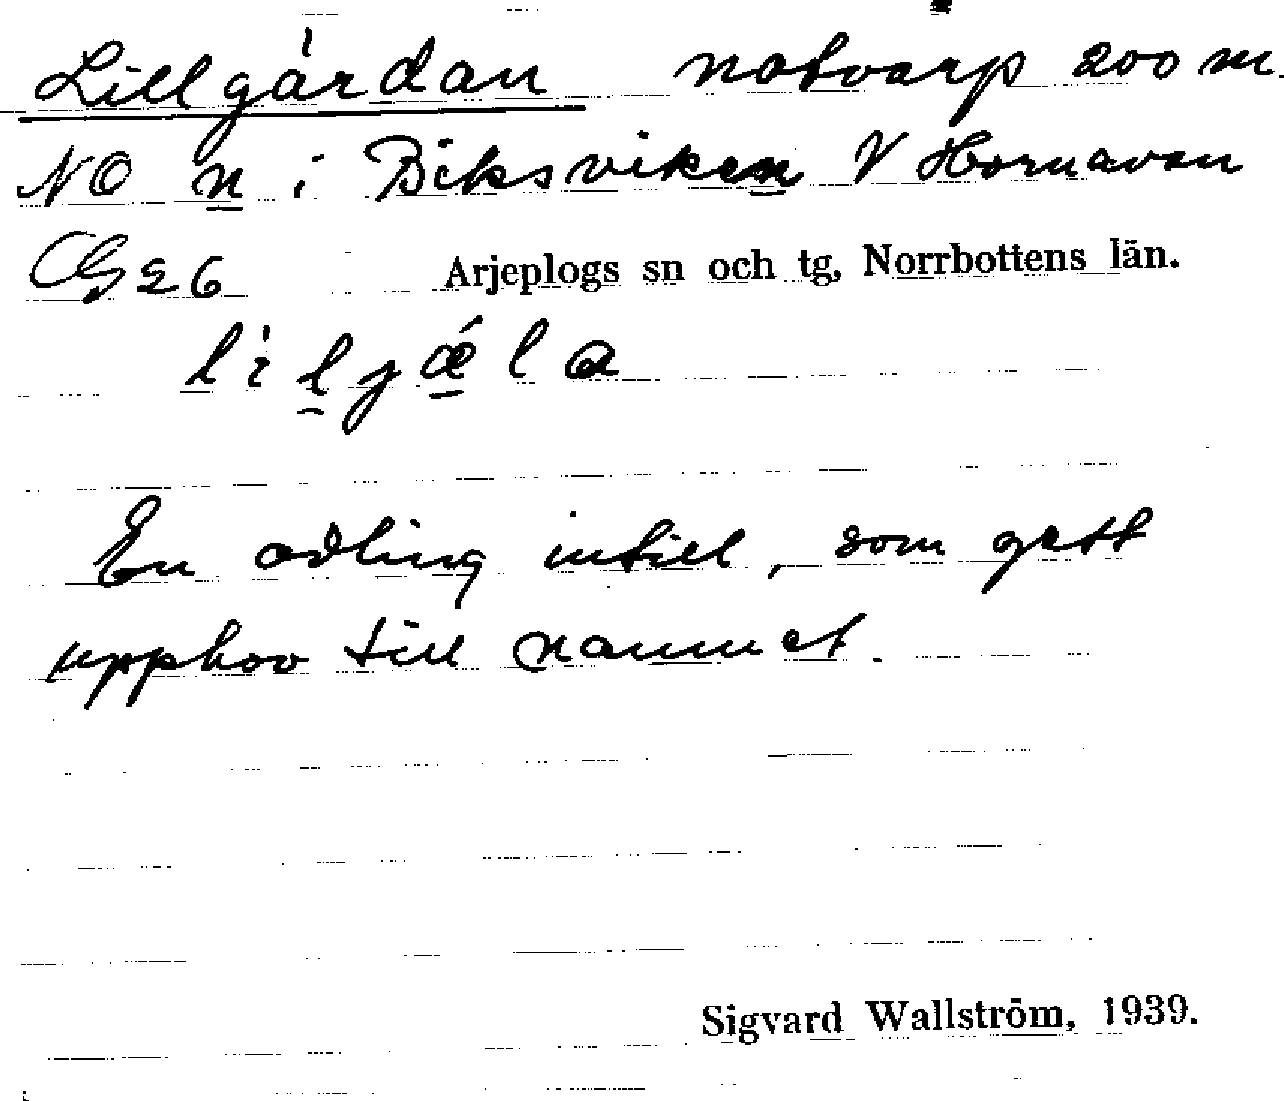 Lillgårdan notvarp 200 m
NO n i Biksviken V Hornavan
CG 26 Arjeplogs sn och tg, Norrbottens län.
liljǽla
En odling intill, som gett
upphov till namnet.
Sigvard Wallström, 1939.